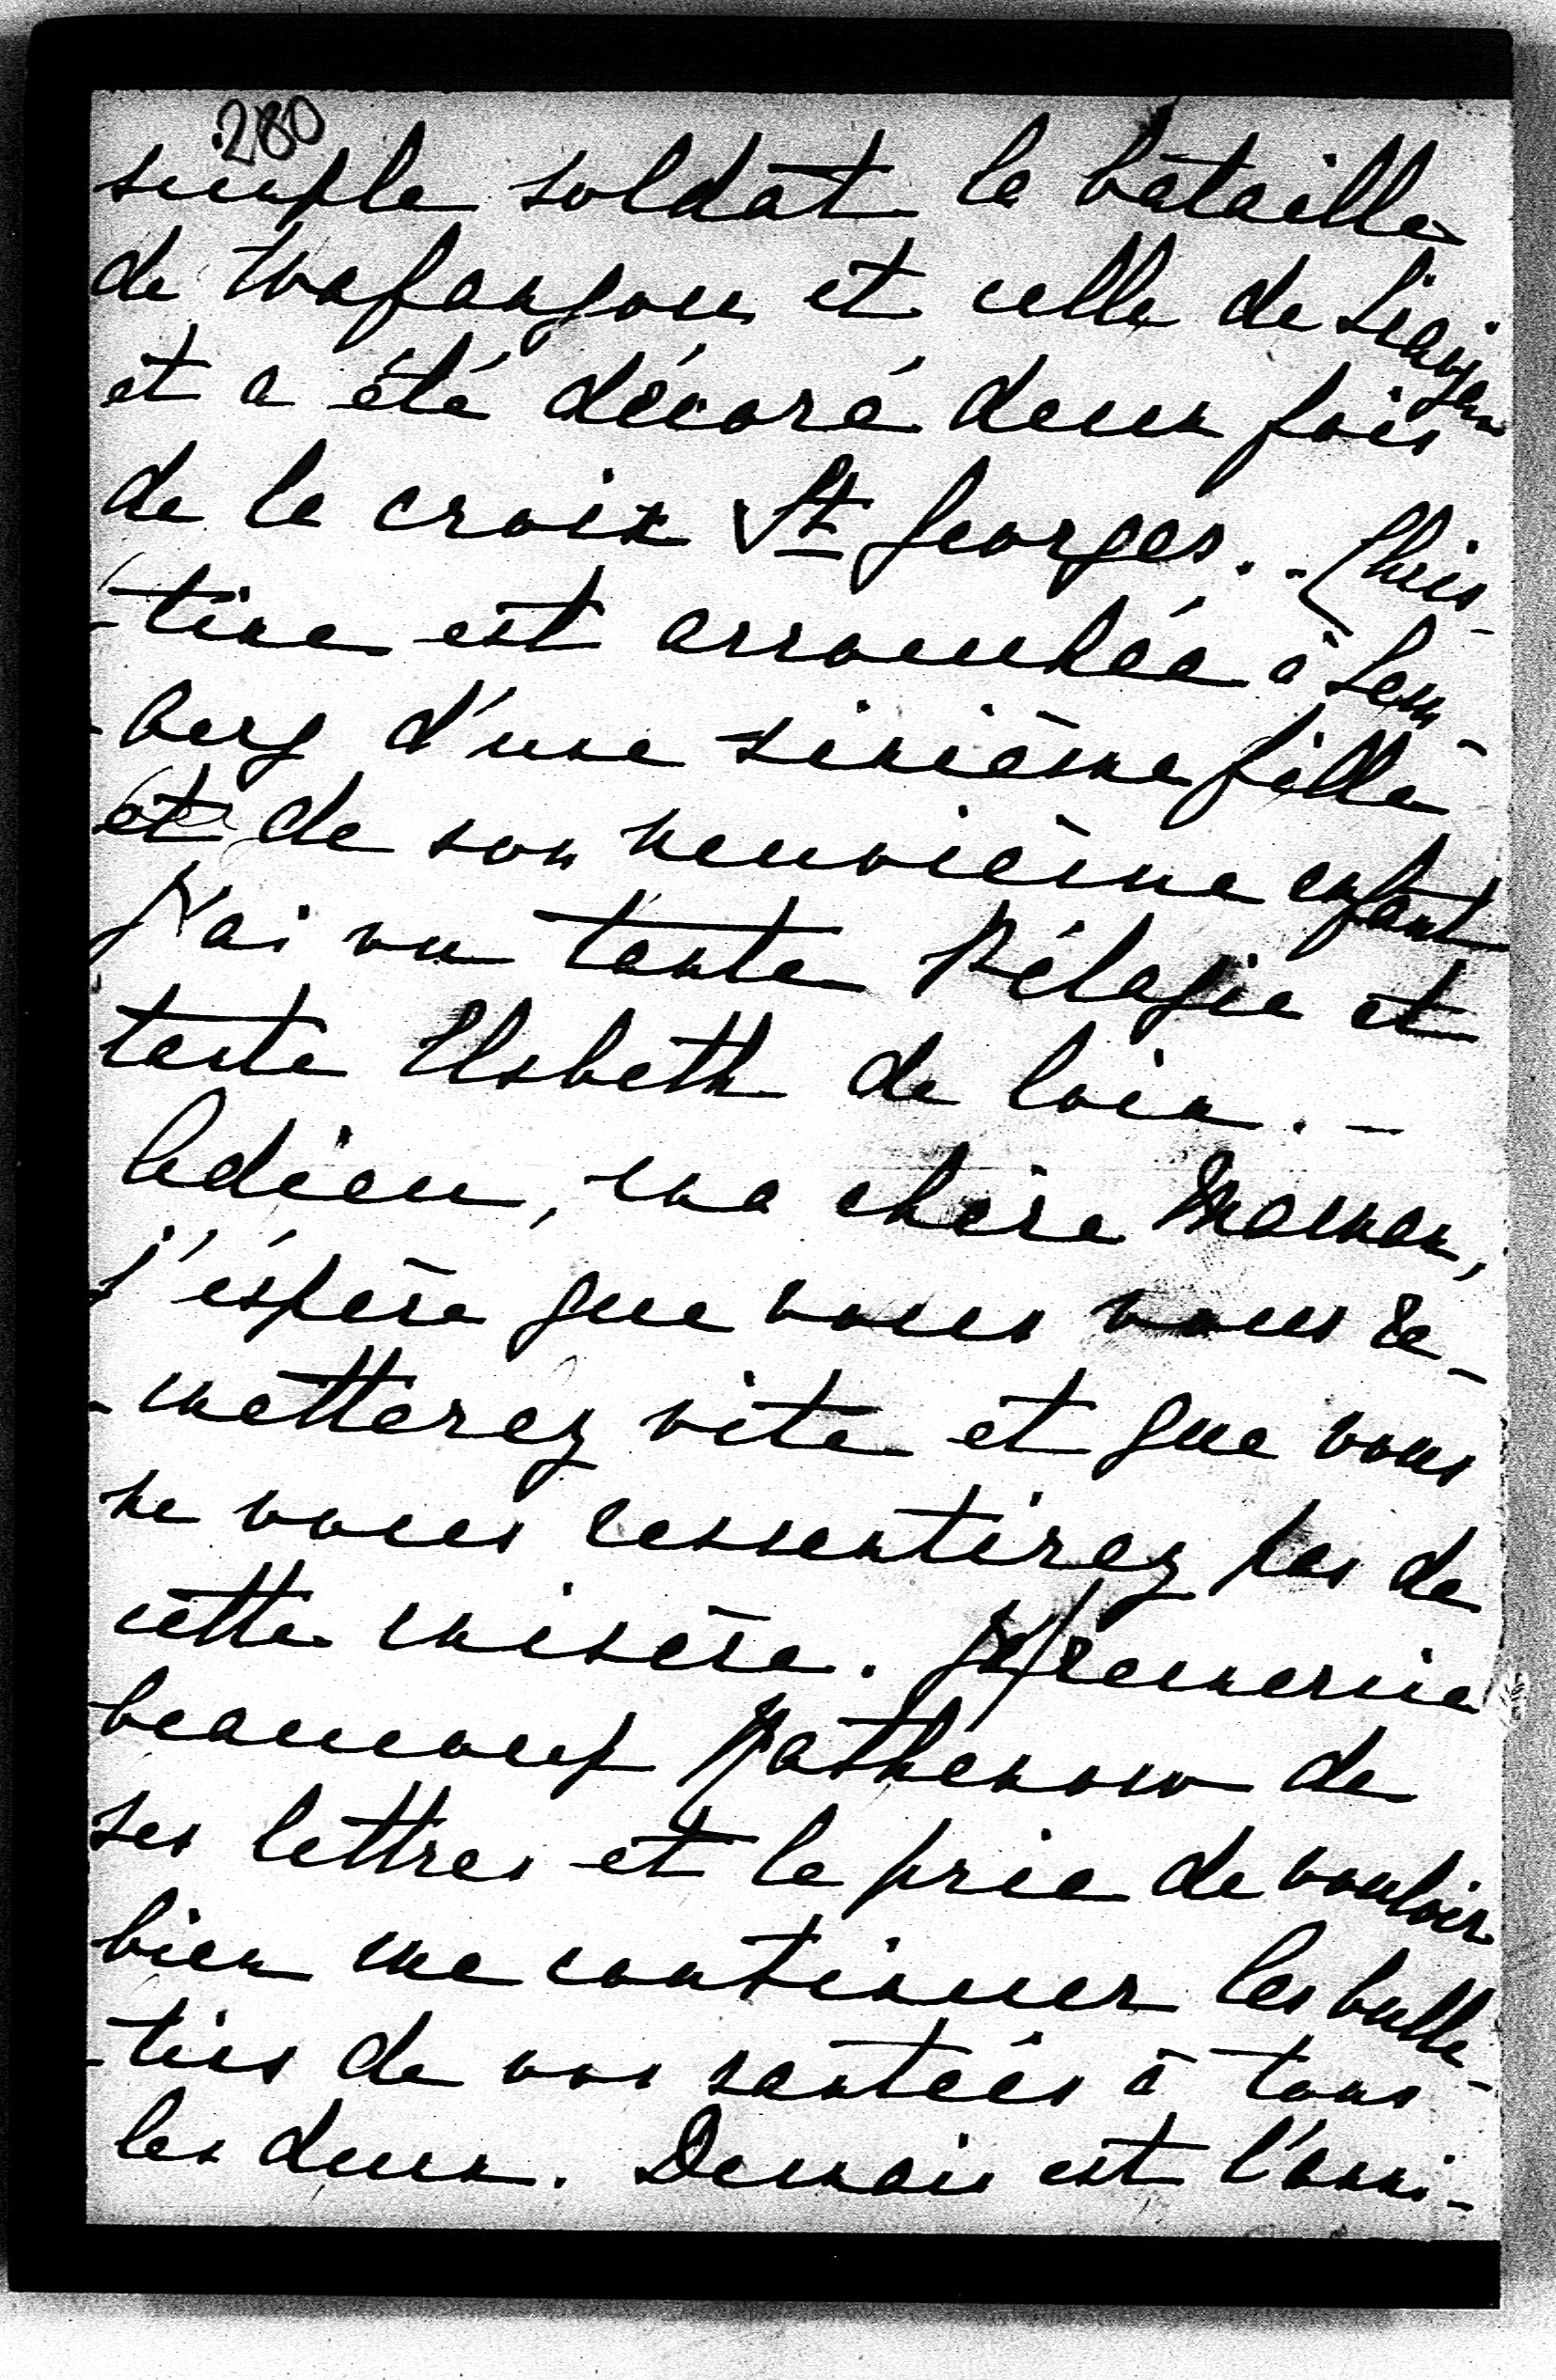 280
simple soldat la bataille
de Wafangou et celle de Liaojan
et a été décoré deux fois
de la croix St Georges. - Chris-
-tine est accouchée à Lem-
-berg d'une sixième fille
et de son neuvième enfant
J'ai vu tante Pélagie et
tante Elsbeth de loin. -
Adieu, ma chère Maman,
j'éspère que vous vous re-
-metterez vite et que vous
ne vous ressentirez pas de
cette misère. Je remercie
beaucoup Rathenow de
ses lettres et le prie de vouloir
bien me continuer les bulle-
-tins de vos santées à tous
les deux. Demain est l'anni-